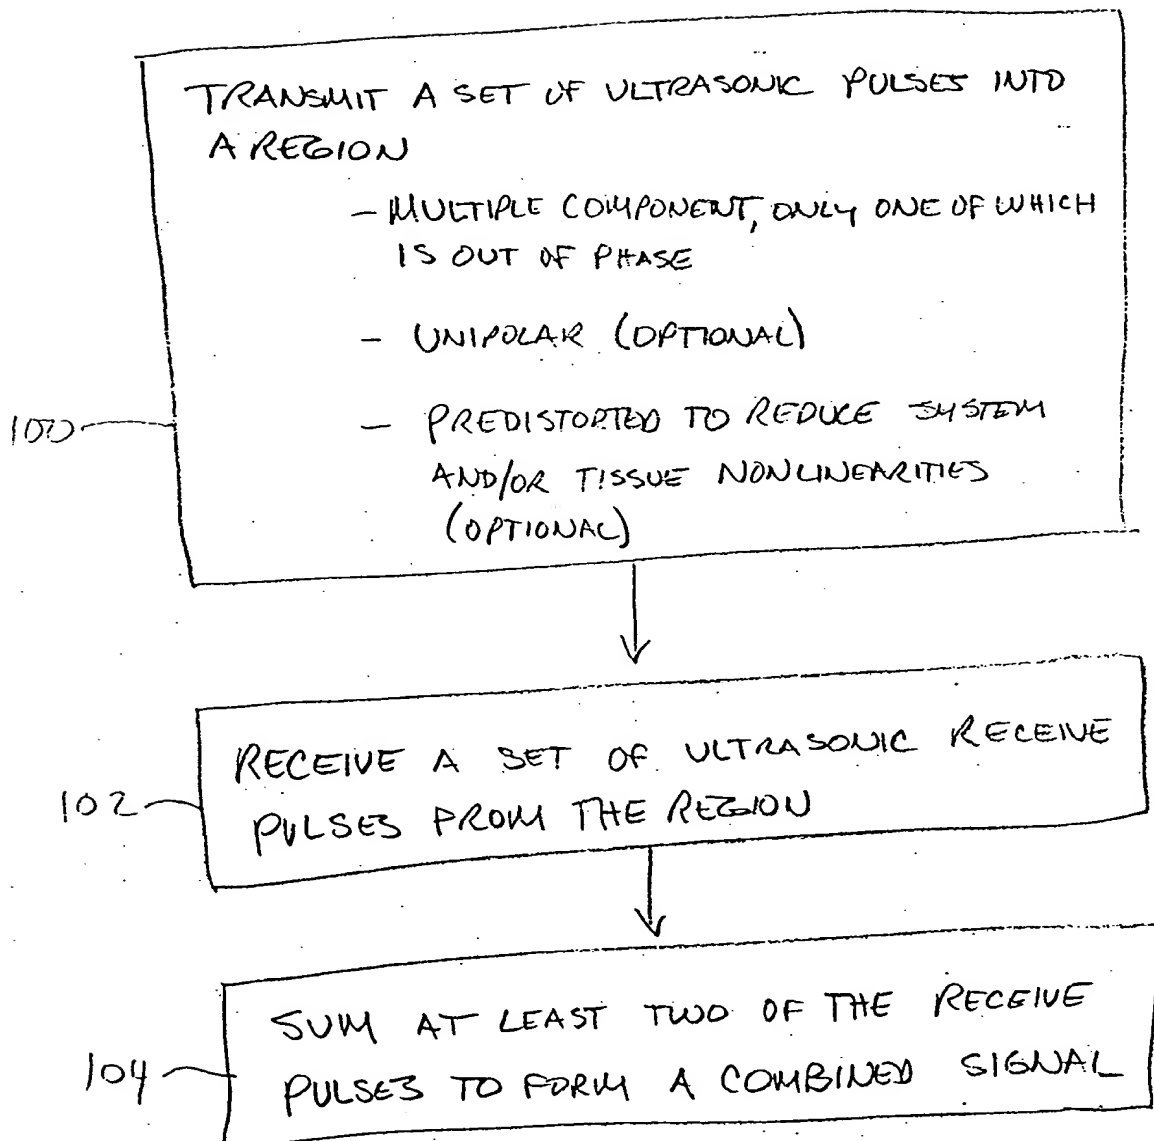 TRANSMIT A SET OF ULTRASONIC PULSES INTO
A REGION
- MULTIPLE COMPONENT, ONLY ONE OF WHICH
IS OUT OF PHASE
- UNIPOLAR (OPTIONAL)
100
- PREDISTORTED TO REDUCE SYSTEM
AND/OR TISSUE NONLINEARITIES
(OPTIONAL)
RECEIVE A SET OF ULTRASONIC RECEIVE
102
PULSES FROM THE REGION
SUM AT LEAST TWO OF THE RECEIVE
104
PULSES TO FORM A COMBINED SIGNAL